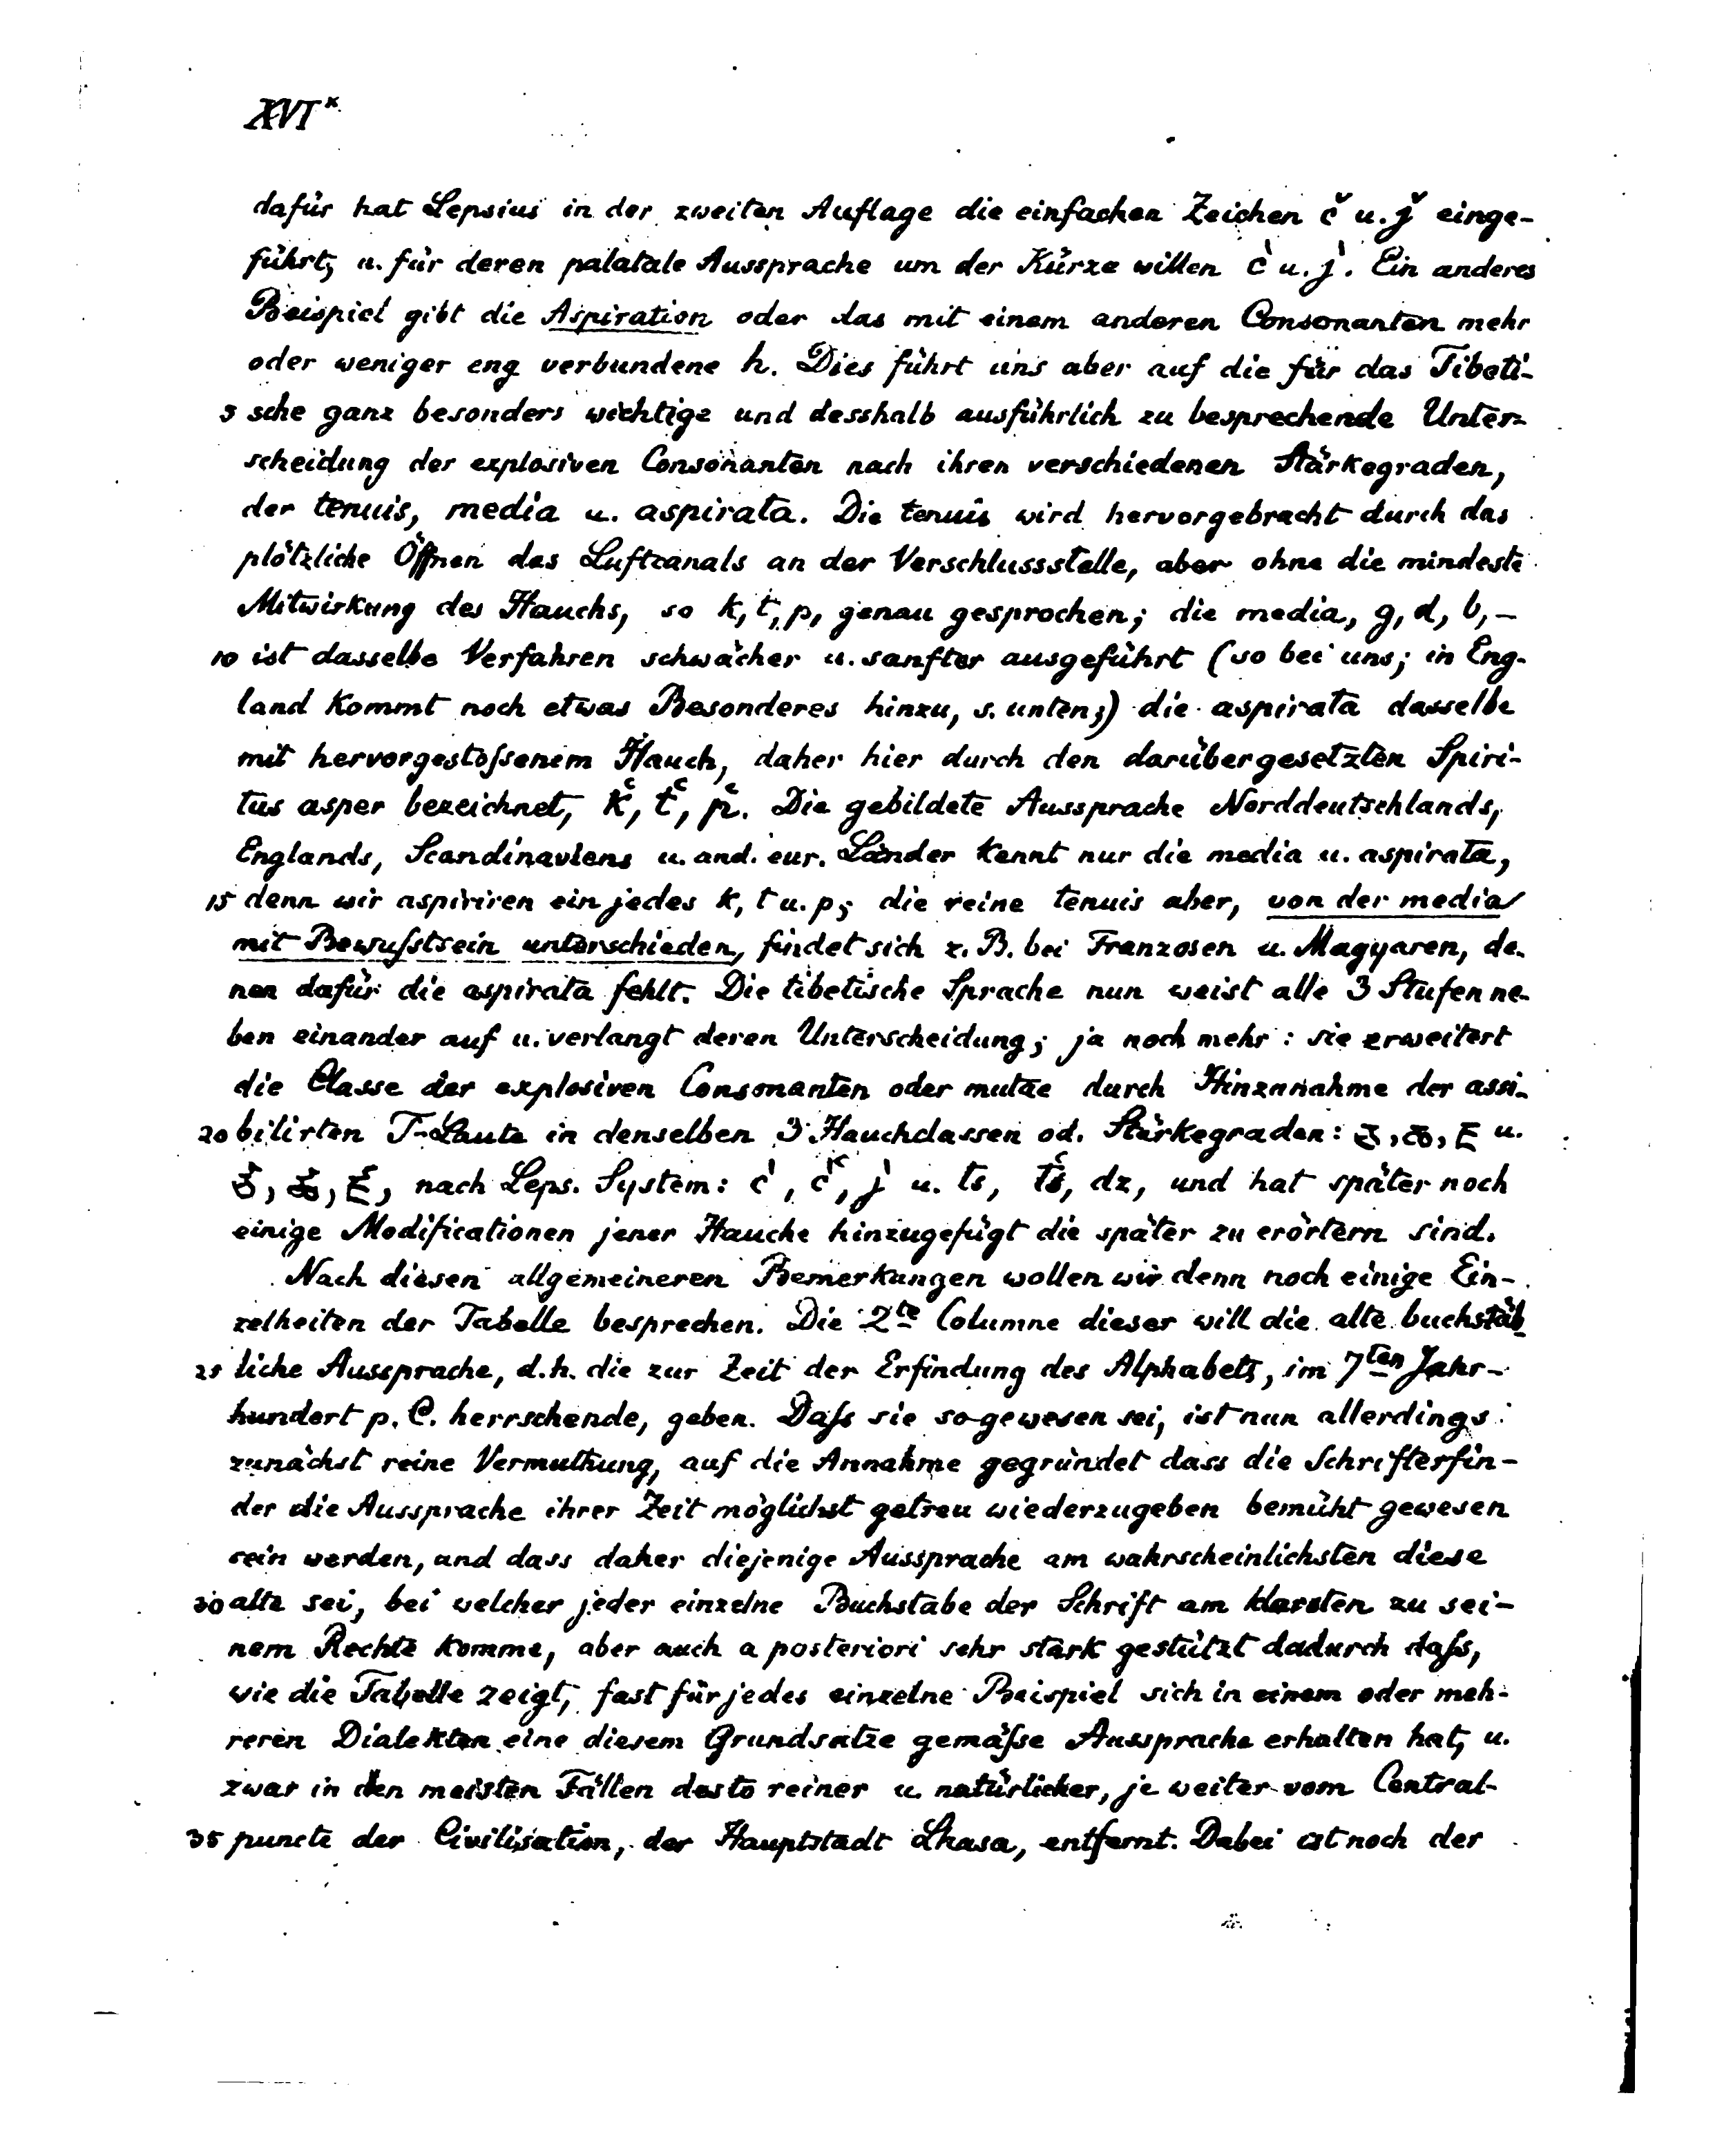 XVI*
dafür hat Lepsius in der zweiten Auflage die einfachen Zeichen č u. ǰ einge-
führt, u. für deren palatale Aussprache um der Kürze willen c̀ u. j̀. Ein anderes
Beispiel gibt die Aspiration oder das mit einem anderen Consonanten mehr
oder weniger eng verbundene h. Dies führt uns aber auf die für das Tibeti-
5 sche ganz besonders wichtige und desshalb ausführlich zu besprechende Unter-
scheidung der explosiven Consonanten nach ihren verschiedenen Stärkegraden,
der tenuis, media u. aspirata. Die tenuis wird hervorgebracht durch das
plötzliche Öffnen des Luftcanals an der Verschlussstelle, aber ohne die mindeste
Mitwirkung des Hauchs, so k, t, p, genau gesprochen; die media, g, d, b, –
10 ist dasselbe Verfahren schwächer u. sanfter ausgeführt (so bei uns; in Eng-
land kommt noch etwas Besonderes hinzu, s. unten;) die aspirata dasselbe
mit hervorgestoſsenem Hauch, daher hier durch den darübergesetzten Spiri-
tus asper bezeichnet, k̔, t̔, p̔. Die gebildete Aussprache Norddeutschlands,
Englands, Scandinaviens u. and. eur. Länder kennt nur die media u. aspirata,
15 denn wir aspiriren ein jedes k, t u. p; die reine tenuis aber, von der media
mit Bewuſstsein unterschieden, findet sich z. B. bei Franzosen u. Magyaren, de-
nen dafür die aspirata fehlt. Die tibetische Sprache nun weist alle 3 Stufen ne-
ben einander auf u. verlangt deren Unterscheidung; ja noch mehr: sie erweitert
die Classe der explosiven Consonanten oder mutae durch Hinzunahme der assi-
20 bilirten T-Laute in denselben 3 Hauchclassen od. Stärkegraden: ཅ, ཆ, ཇ u.
ཙ, ཚ, ཛ, nach Leps. System: c̀, c̀̔, j̀ u. ts, t̔s, dz, und hat später noch
einige Modificationen jener Hauche hinzugefügt die später zu erörtern sind.
Nach diesen allgemeineren Bemerkungen wollen wir denn noch einige Ein-
zelheiten der Tabelle besprechen. Die 2te Columne dieser will die alte buchstäb
25 liche Aussprache, d. h. die zur Zeit der Erfindung des Alphabets, im 7ten Jahr-
hundert p. C. herrschende, geben. Daſs sie so gewesen sei, ist nun allerdings
zunächst reine Vermuthung, auf die Annahme gegründet dass die Schrifterfin-
der die Aussprache ihrer Zeit möglichst getreu wiederzugeben bemüht gewesen
sein werden, und dass daher diejenige Aussprache am wahrscheinlichsten diese
30 alte sei, bei welcher jeder einzelne Buchstabe der Schrift am klarsten zu sei-
nem Rechte komme, aber auch a posteriori sehr stark gestützt dadurch daſs,
wie die Tabelle zeigt, fast für jedes einzelne Beispiel sich in einem oder meh-
reren Dialekten eine diesem Grundsatze gemäſse Aussprache erhalten hat, u.
zwar in den meisten Fällen desto reiner u. natürlicher, je weiter vom Central-
35 puncte der Civilisation, der Hauptstadt Lhasa, entfernt. Dabei ist noch der